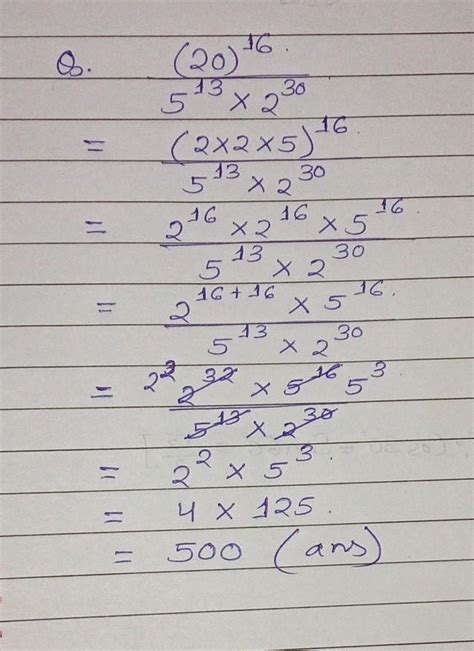 Q. (20)^16 / 5^13 × 2^30
= (2×2×5)^16 / 5^13 × 2^30
= 2^16 × 2^16 × 5^16 / 5^13 × 2^30
= 2^16+16 × 5^16 / 5^13 × 2^30
= 2^2 2^32 × 5^16 5^3 / 5^13 × 2^30
= 2^2 × 5^3
= 4 × 125
= 500 (ans)